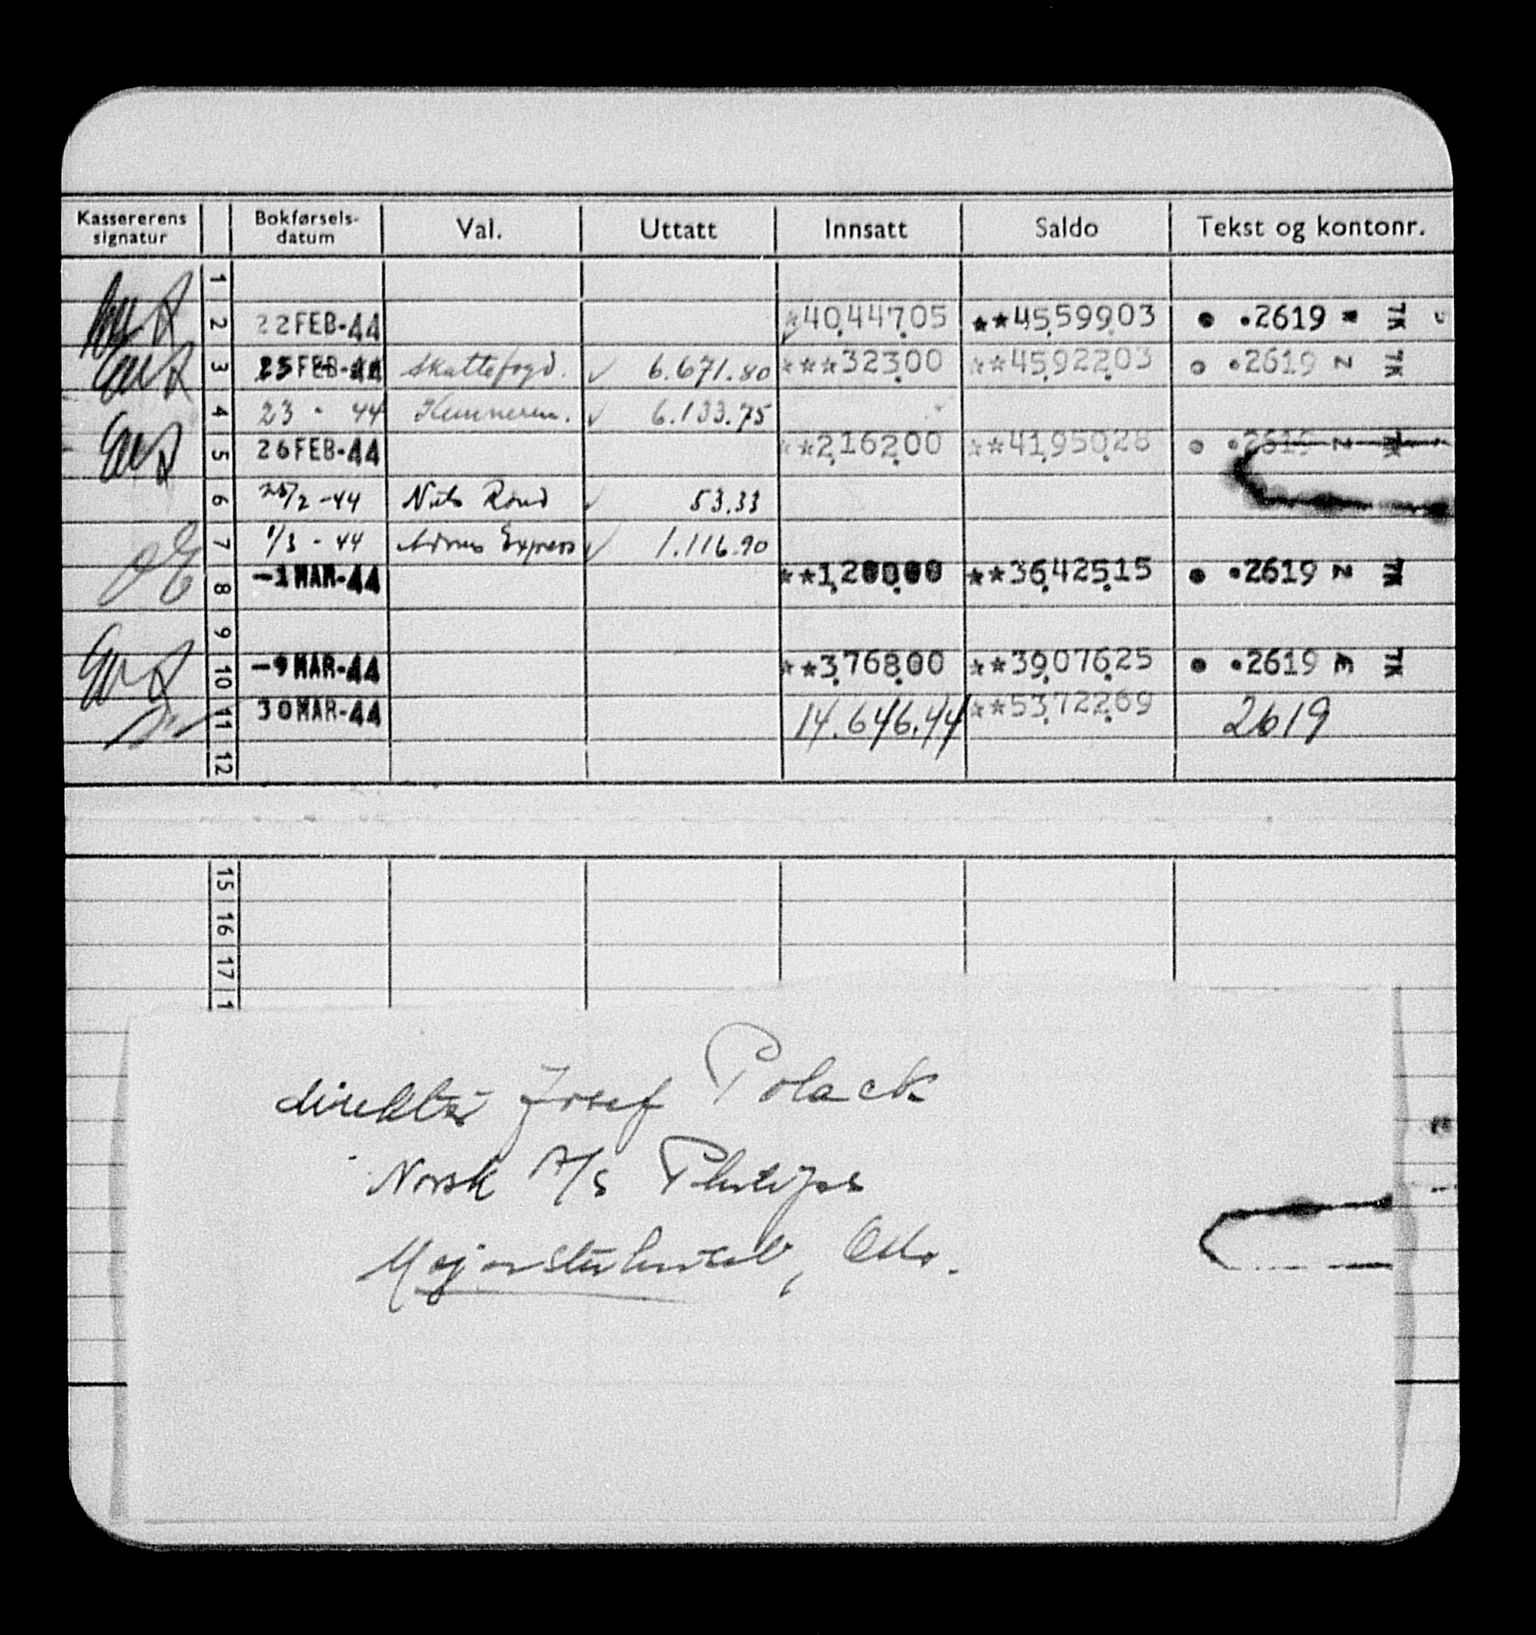 Kassererens signatur Bokførsels-datum Val. Uttatt Innsatt Saldo Tekst og kontonr.
1
2 22 FEB-44 *40,447.05 **45,599.03 .2619 * TK
3 25 FEB-44 Skattefogd. 6.671.80 ***323.00 **45,922.03 .2619 Z TK
4 23 - 44 Kemneren. 6.133.75
5 26 FEB-44 **2,162.00 **41,950.28 .2619 Z TK
6 /2 -44 Nils 53.33
7 1/3 - 44 Express 1.116.90
8 -1 MAR-44 **1,200.00 **36,425.15 .2619 Z TK
9
10 -9 MAR-44 **3,768.00 **39,076.25 .2619 Æ TK
11 30 MAR-44 14.646.44 **53,722.69 2619
12
15
16
17
1
direktør Josef Polack
Norsk A/S Philips
Majorstuhuset, Oslo.